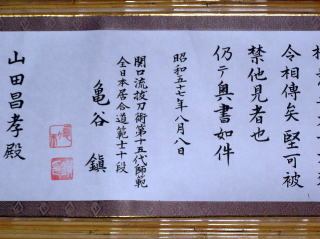 令相傳矣堅可被
禁他見者也
仍テ奥書如件
昭和五十七年八月八日
関口流抜刀術第十五代師範
全日本居合道範士十段
亀谷 鎮
山田昌孝殿